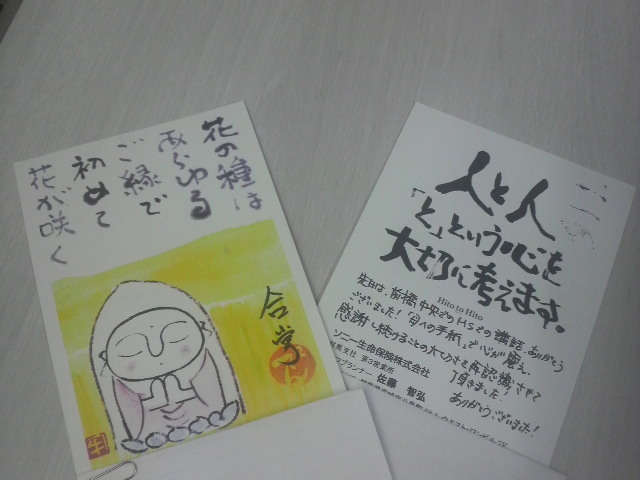 花の種は
あらゆる
ご縁で
初めて
花が咲く
合掌
人と人
「と」という心を
大切に考えます。
Hito to Hito
先日は、前橋中央でのMSでの講話、ありがとう
ございました!「母への手紙」で心が震え、
感謝し続けることの大切さを再認識させて
頂きました!
ありがとうございました!
ソニー生命保険株式会社
支社 第3営業所
プランナー 佐藤 智弘